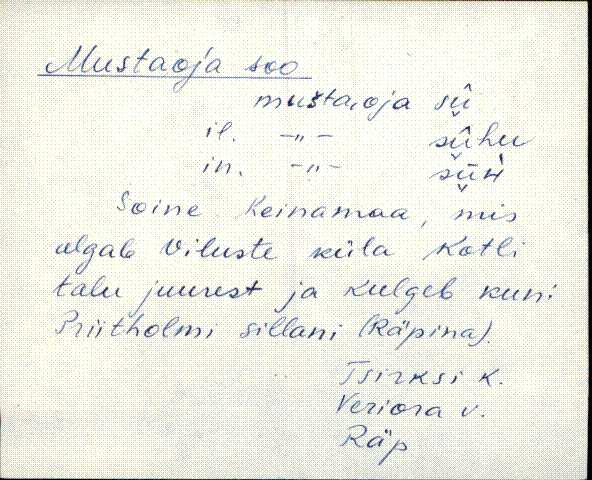 Mustaoja soo
mušta,oja sü̬̂
il. -„- sü̬̂hu
in. -„- sǖ̬h
Soine heinamaa, mis
algab Viluste küla Kotli
talu juurest ja kulgeb kuni
Priitholmi sillani (Räpina).
Tsirksi k.
Veriora v.
Räp